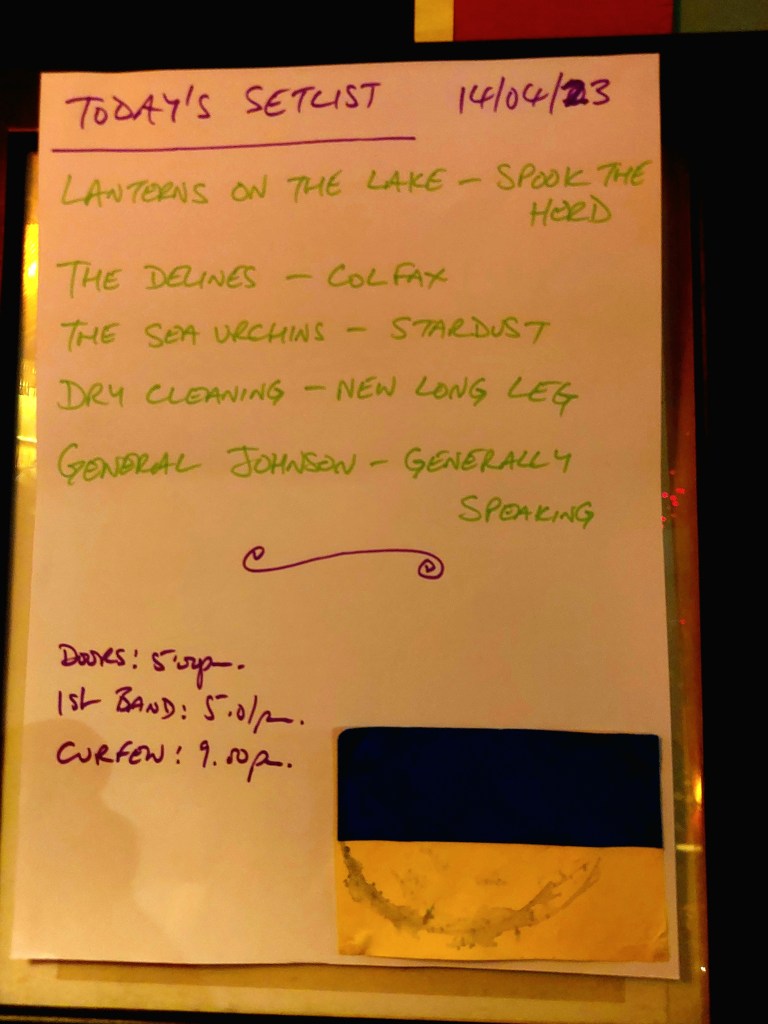 TODAY'S SETLIST 14/04/23
LANTERNS ON THE LAKE – SPOOK THE
HERD
THE DELINES – COLFAX
THE SEA URCHINS – STARDUST
DRY CLEANING – NEW LONG LEG
GENERAL JOHNSON – GENERALLY
SPEAKING
DOORS: 5.00p.
1ST BAND: 5.01p.
CURFEW: 9.00p.